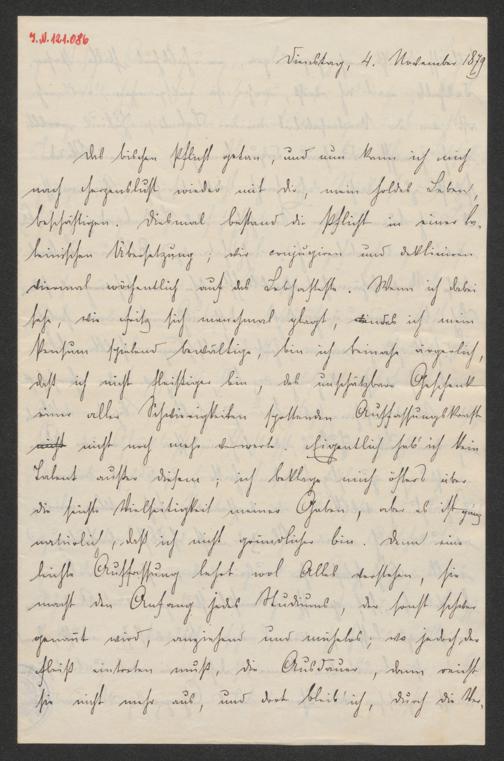 J.N. 121.086
Dienstag, 4. November 1879
Das bischen Pflicht getan, und nun kann ich mich
nach Herzenslust wieder mit dir, mein holdes Leben,
beschäftigen. Diesmal bestand die Pflicht in einer la-
teinischen Übersetzung; wir conjugiren und dekliniren
viermal wöchentlich auf das Lebhafteste. Wenn ich dabei
sehe, wie Fritz sich manchmal plagt, indes ich mein
Pensum spielend bewältige, bin ich beinahe ärgerlich,
daß ich nicht fleißiger bin, das unschätzbare Geschenk
einer aller Schwierigkeiten spottenden Auffassungskraft
nicht noch mehr verwerte. Eigentlich hab' ich kein
Talent außer diesem; ich beklage mich öfters über
die seichte Vielseitigkeit meiner Gaben, aber es ist ganz
natürlich, daß ich nicht gründlicher bin. Denn eine
leichte Auffassung lehrt wol Alles verstehen, sie
macht den Anfang jedes Studiums, der sonst schwer
genannt wird, anziehend und mühelos; wo jedoch der
Fleiß eintreten muß, die Ausdauer, dann reicht
sie nicht mehr aus, und dort bleib' ich, durch die Ver-